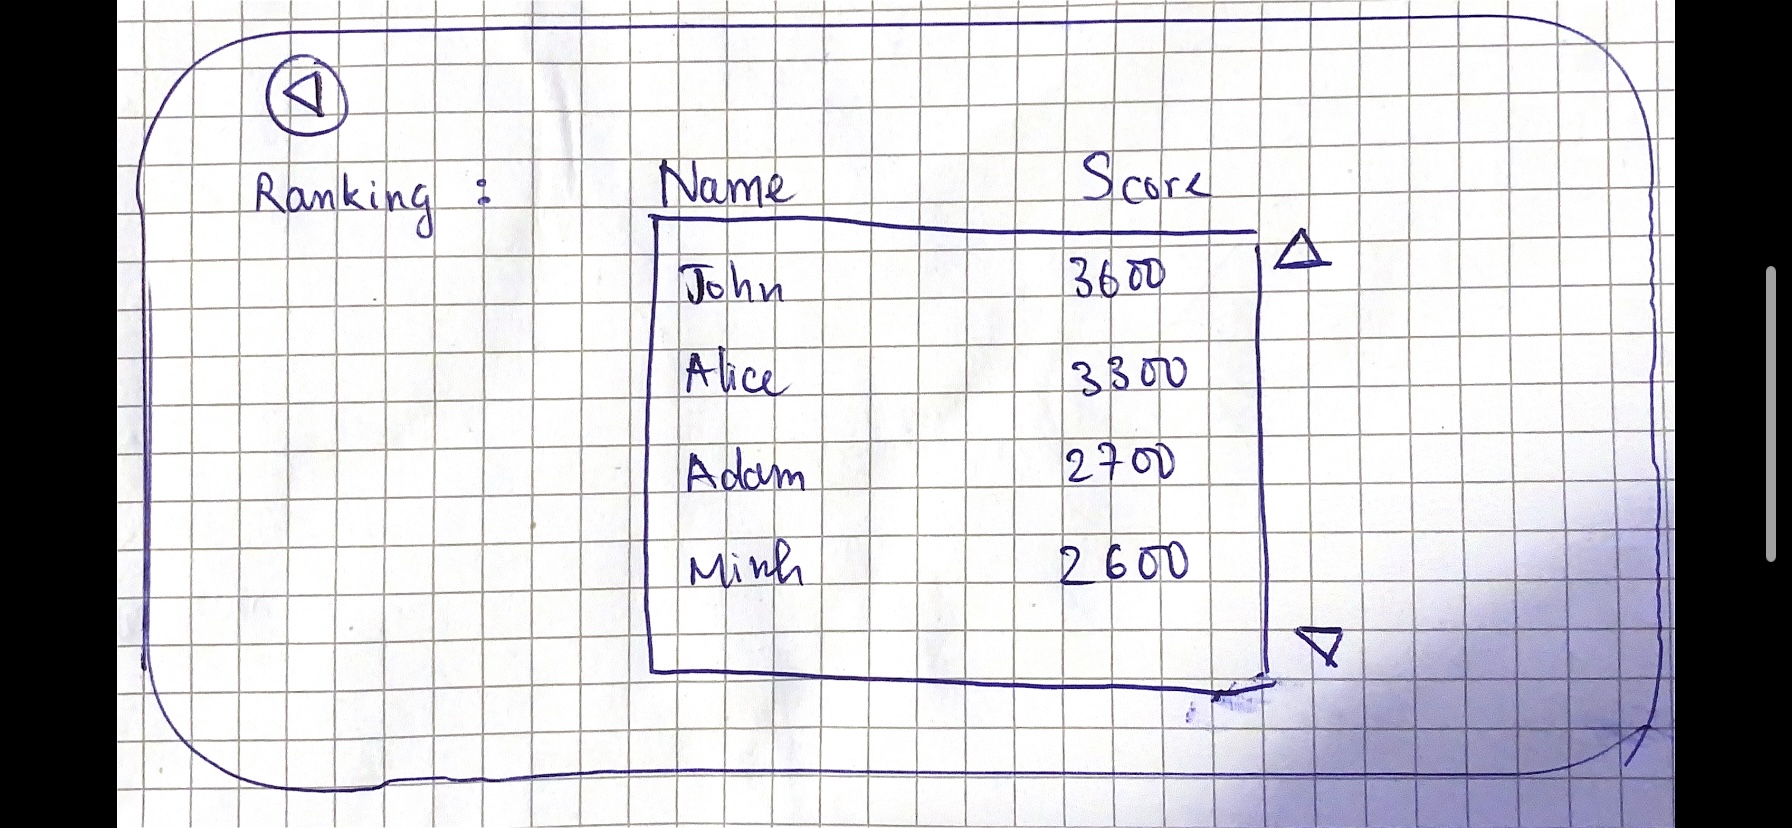 Ranking : Name Score
John 3600
Alice 3300
Adam 2700
Minh 2600